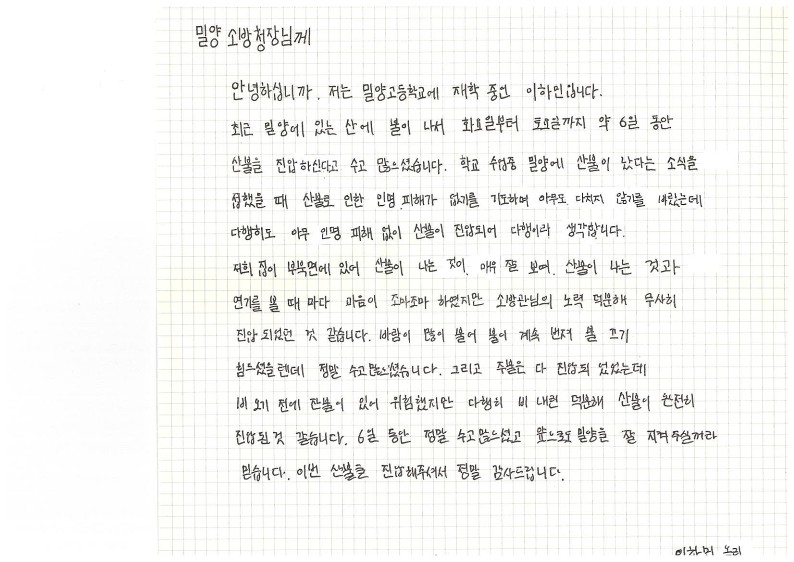 밀양 소방청장님께
안녕하십니까. 저는 밀양고등학교에 재학 중인 이하민입니다.
최근 밀양에 있는 산에 불이 나서 화요일부터 토요일까지 약 6일 동안
산불을 진압하신다고 수고 많으셨습니다. 학교 수업중 밀양에 산불이 났다는 소식을
접했을 때 산불로 인한 인명 피해가 없기를 기도하며 아무도 다치지 않기를 바랐는데
다행히도 아무 인명 피해 없이 산불이 진압되어 다행이라 생각합니다.
저희 집이 부북면에 있어 산불이 나는 것이 매우 잘 보여. 산불이 나는 것과
연기를 볼 때 마다 마음이 조마조마 하였지만 소방관님의 노력 덕분에 무사히
진압 되었던 것 같습니다. 바람이 많이 불어 불이 계속 번져 불 끄기
힘드셨을텐데 정말 수고많으셨습니다. 그리고 주불은 다 진압되 었었는데
비 오기 전에 잔불이 있어 위험했지만 다행히 비 내린 덕분에 산불이 완전히
진압된것 같습니다. 6일 동안 정말 수고많으셨고 앞으로도 밀양을 잘 지켜주실꺼라
믿습니다. 이번 산불을 진압해주셔서 정말 감사드립니다.
이하민 올림